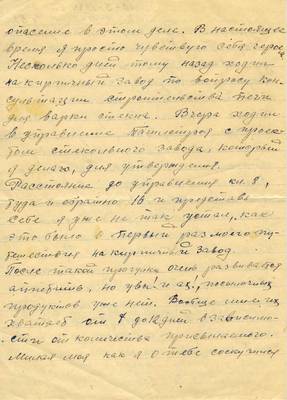 опасение в этом деле. В настоящее
время я просто чувствую себя героем
Несколько дней тому назад ходил
на кирпичный завод по вопросу кон-
сультации строительства печи
для варки стекла. Вчера ходил
в управление с проек-
том стекольного завода, который
я делаю, для утверждения.
Расстояние до управления км. 8,
туда и обратно 16 и представь
себе я уже не так устал, как
это было в первый раз моего пу-
тешествия на кирпичный завод.
После такой прогулки очень развивается
аппетит, но увы и ах, посылочных
продуктов уже нет. Вообще мне их
хватает от 8 до 12 дней в зависимо-
сти от количества присылаемого.
Милая моя как я о тебе соскучился